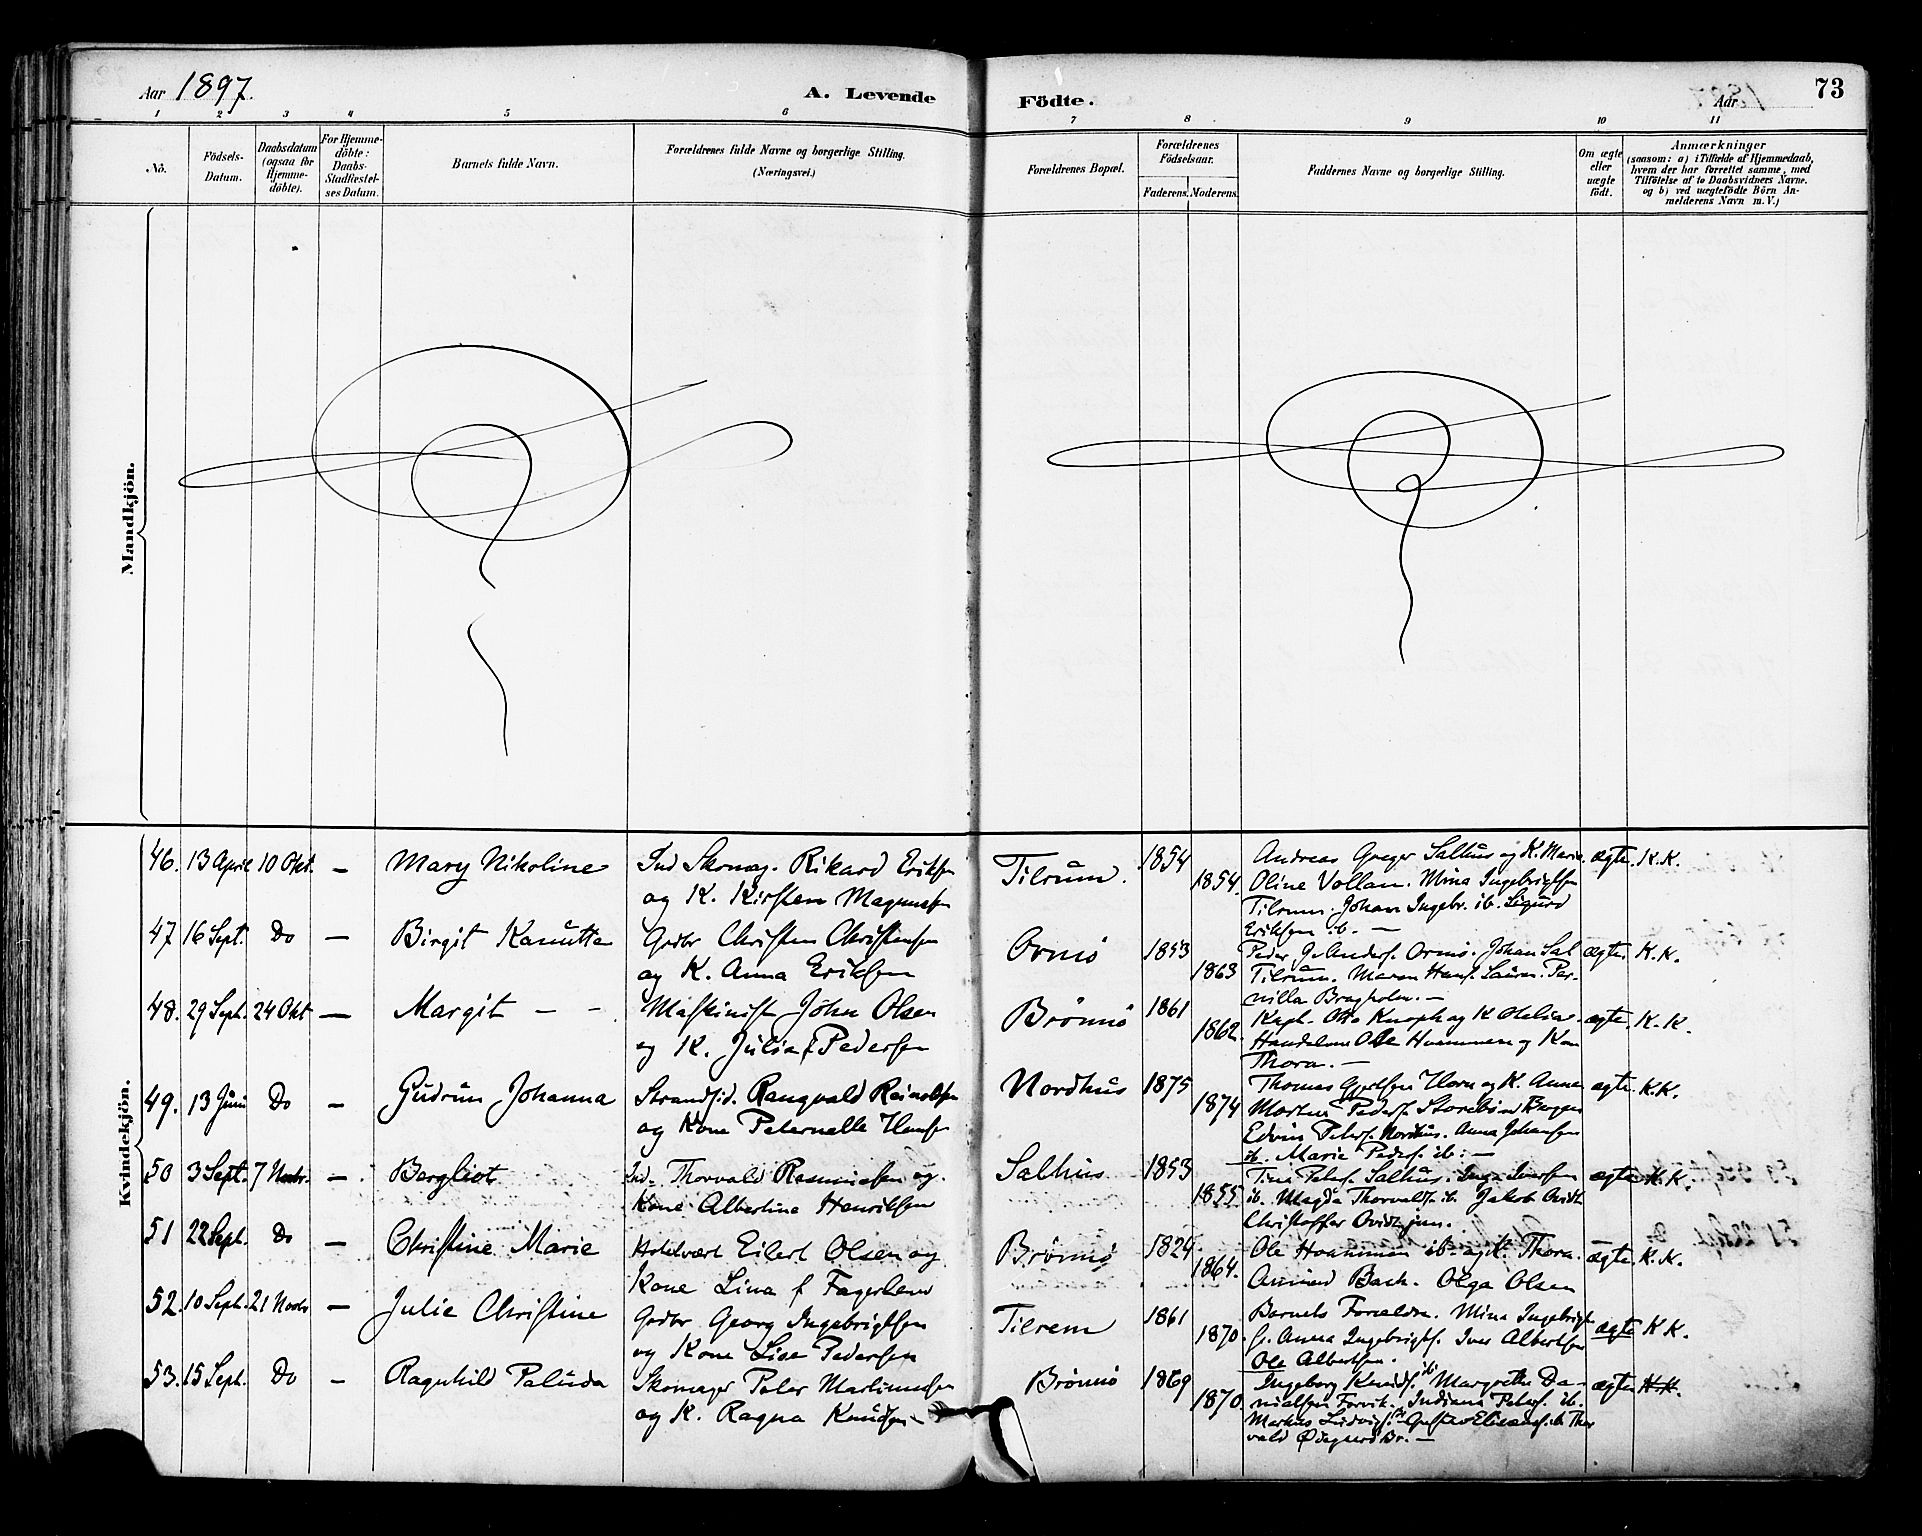 Aar 1897.
A. Levende
Födte.
Aar
73
1 2 3 4 5 6 7 8 9 10 11
No.
Födsels-
Datum.
Daabsdatum
(ogsaa for
Hjemme-
döbte).
For Hjemme-
döbte:
Daabs-
Stadfæstel-
ses Datum.
Barnets fulde Navn.
Forældrenes fulde Navne og borgerlige Stilling.
(Næringsvei.)
Forældrenes Bopæl.
Forældrenes
Födselsaar.
Faderens. Moderens.
Faddernes Navne og borgerlige Stilling.
Om ægte
eller
uægte
født.
Anmærkninger
(saasom: a) i Tilfælde af Hjemmedaab,
hvem der har forrettet samme, med
Tilföielse af to Daabsvidners Navne.
og b) ved uægtefödte Börn An-
melderens Navn m. V.)
Mandkjön.
Kvindekjön.
46. 13 April 10 Okt. — Mary Nikoline
Ind Skomag. Rikard Eriksen
og K. Kirsten Magnussen
Tilrum. 1854 1854.
Andreas Greger Salhus og K. Marie
Oline Vollan. Mina Ingebrigtsen
Tilrum. Johan Ingebr. ib. Sigurd
Eriksen ib. —
ægte. K. K.
47 16 Sept. Do — Birgit Kanutta
Grdbr Christen Christensen
og K. Anna Eriksen
Ornsö 1853 1863
Peder Johan Sal
Tilrum. Maren Hans. Per-
nilla
ægte. K. K.
48. 29 Sept. 24 Okt — Margit — —
Maskinist John Olsen
og K. Julia f Pedersen
Brönnö 1861 1862.
Kapt. Otto Knoph og K Otelia.
Handelsm Ole Hvammen og Kon
Thora. —
ægte. K. K.
49. 13 Juni Do — Gudrun Johanna
Strandsid. Rangvald Reinoldsen
og Kone Peternelle Hansen
Nordhus 1875 1874
Thomas Gjertsen Horn og K. Anna
Peders. Storebörn
Edvin Peters. Nordhus. Anna Johansen
ib. Marie Peders. ib: —
ægte K.K.
50 3 Sept. 7 Novbr. — Bergliot
Ind. Thorvald Rasmussen og
Kone Albertine Henriksen
Salhus 1853 1855
Tina Peters. Salhus. Inga Iversen
ib. Magda Thorvalds. ib. Jakob Qvidt
Christoffer Qvidt jun.
ægte K. K.
51 22 Sept. Do — Christine Marie
Hotelvært Eilert Olsen og
Kone Lina f Fagerheim
Brönnö 1824 1864.
Ole Hvammen ib. og K. Thora.
Bach. Olga Olsen
ægte. K. K.
52. 10 Sept. 21 Novbr — Julie Christine
Grdbr. Georg Ingebrigtsen
og Kone Lise Pedersen
Tilrem 1861 1870.
Barnets Forældre. Mina Ingebrigt
Anna Ingebrigts. Iver Albertsen
Ole Albertsen.
ægte K K.
53. 15 Sept. Do — Ragnhild Paluda
Skomager Peter Martinussen
og K. Ragna Knudsen
Brönnö 1869 1870.
Ingeborg Knuds. ib Margrethe Da-
nielsen Forvik. Indiana Peters. ib.
Markus Ludvigs. Gustav Eliasens. ib Thor
vald Ödegaard Br. —
ægte K.K.